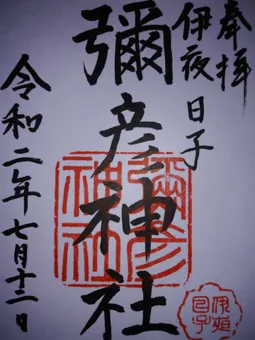 奉拝
伊夜日子
彌彦神社
令和二年七月十二日
彌彦神社